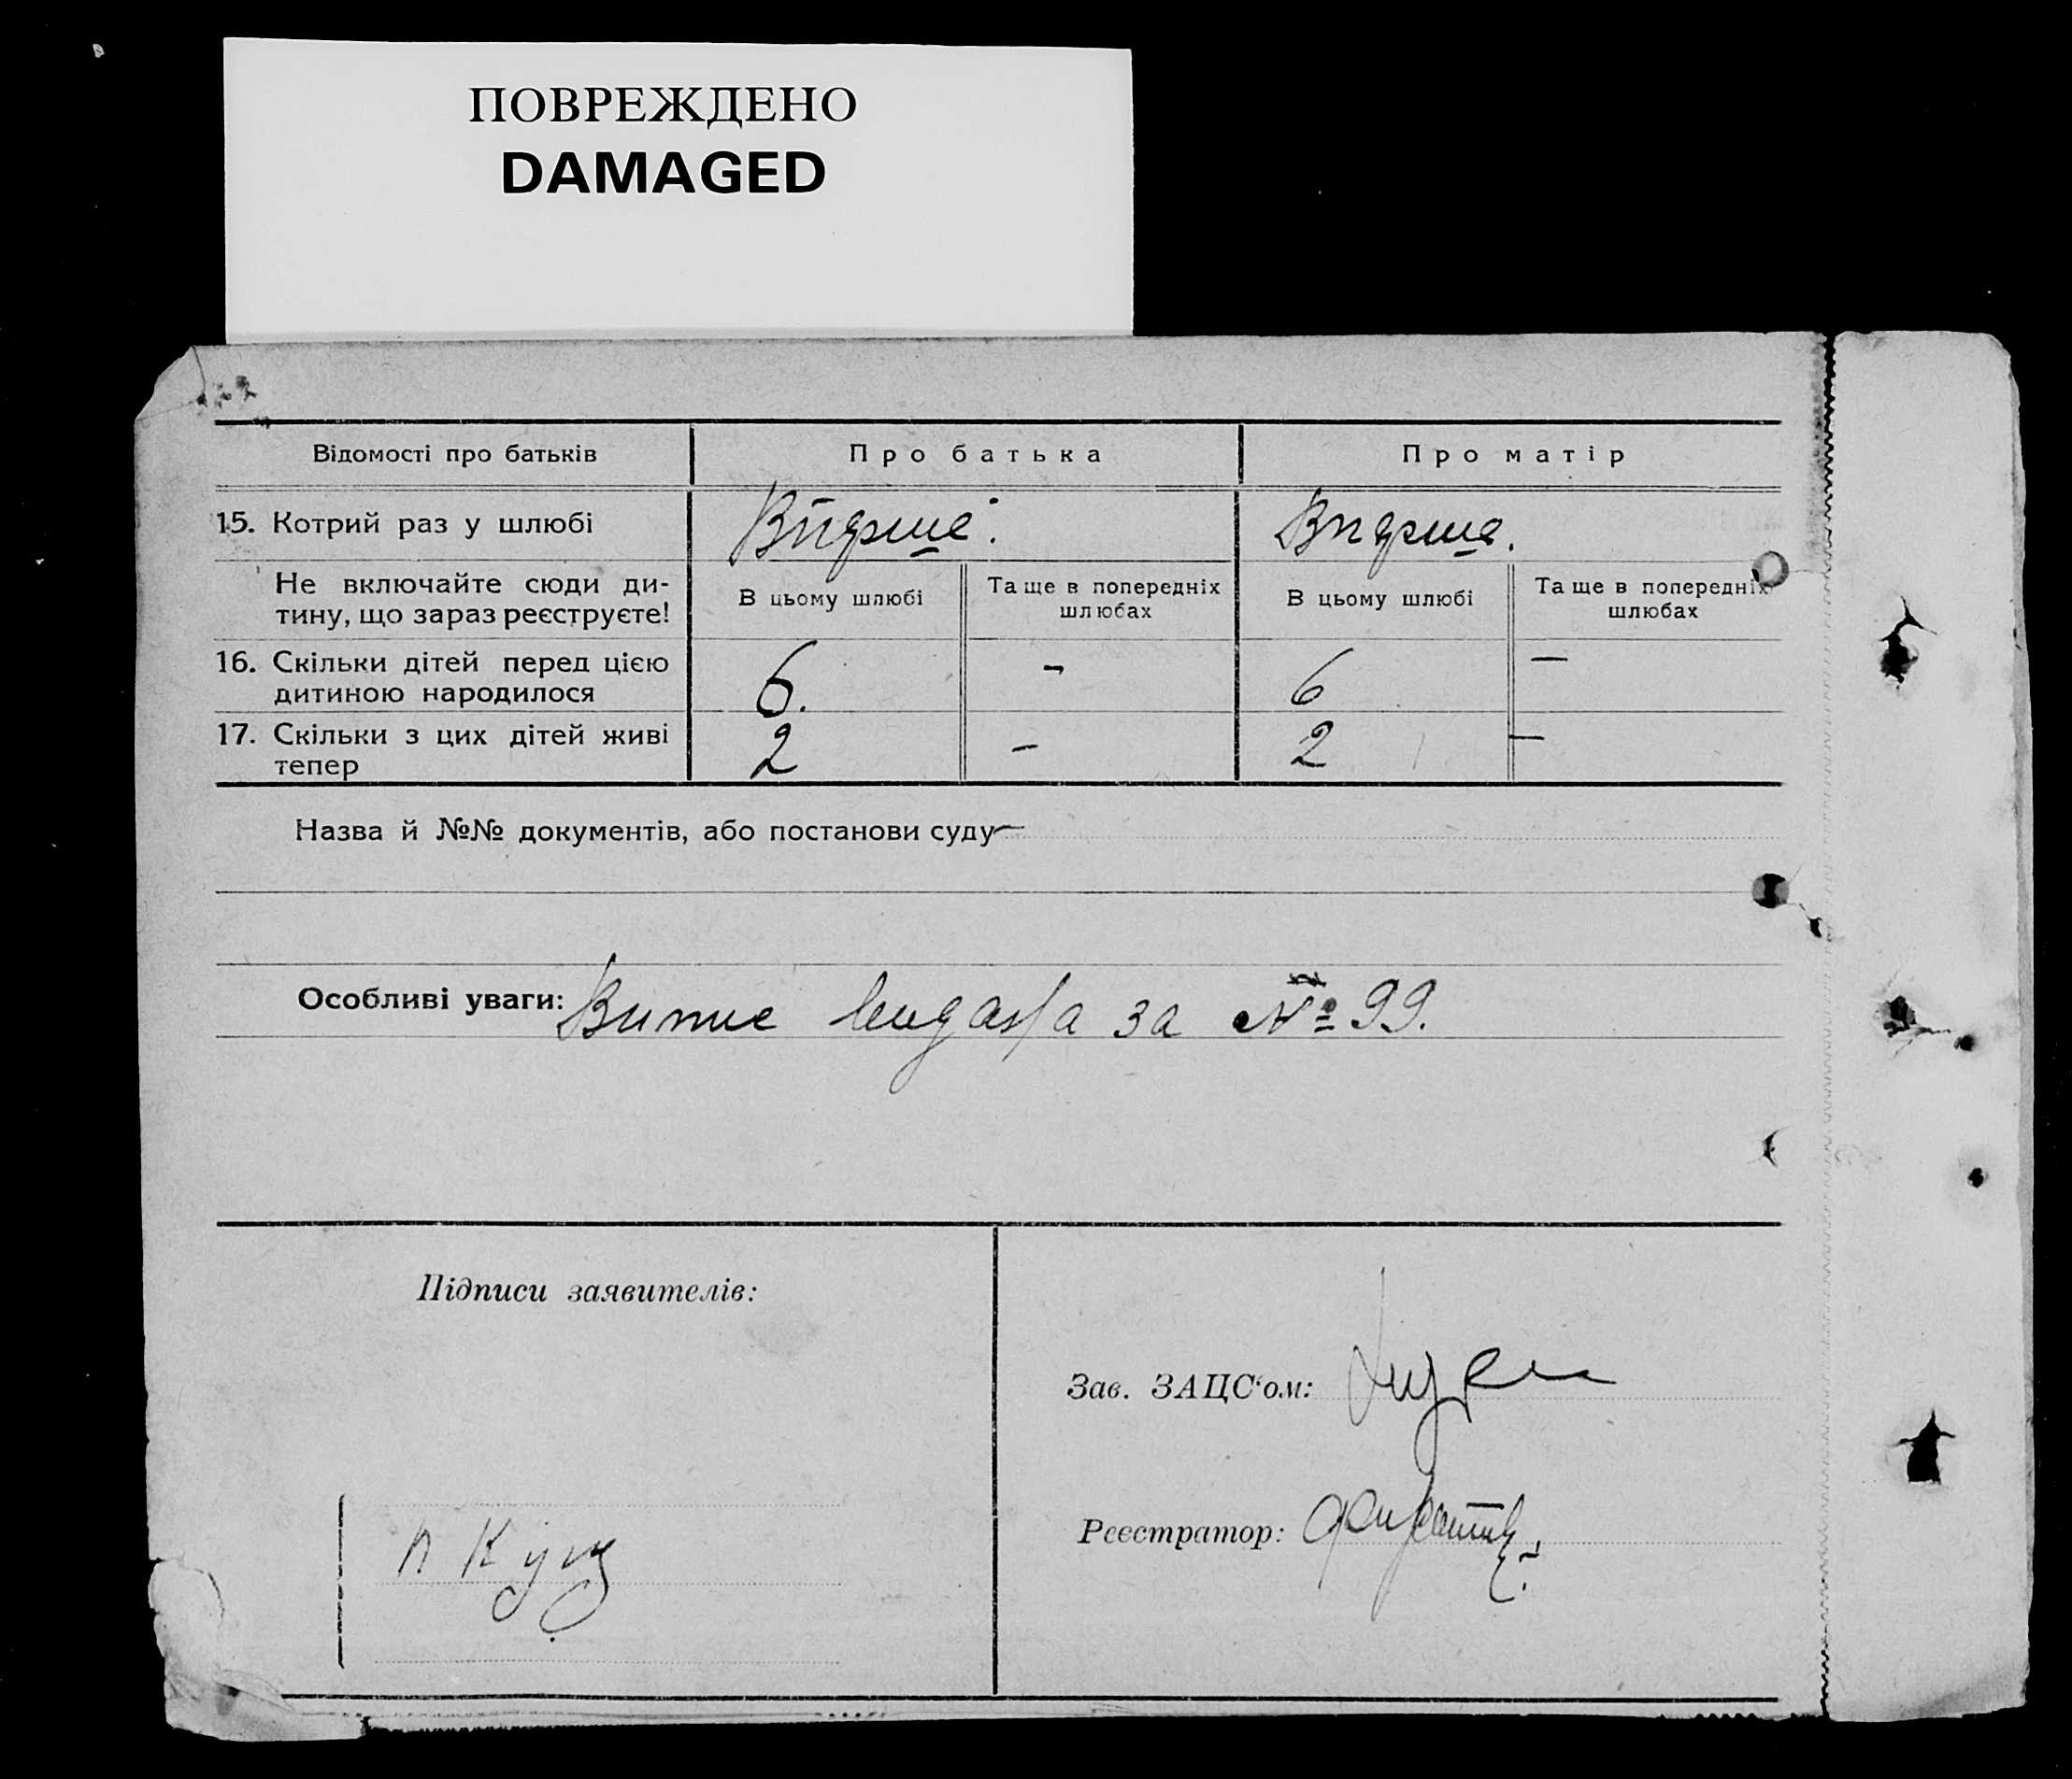 ПОВРЕЖДЕНО
DAMAGED
Відомості про батьків
Про батька
Про матір
15. Котрий раз у шлюбі
Вперше.
Вперше.
Не включайте сюди ди-
тину, що зараз реєструєте!
В цьому шлюбі
Та ще в попередніх
шлюбах
В цьому шлюбі
Та ще в попередніх
шлюбах
16. Скільки дітей перед цією
дитиною народилося
6.
–
6
–
17. Скільки з цих дітей живі
тепер
2
–
2
–
Назва й №№ документів, або постанови суду –
Особливі уваги: за № 99.
Підписи заявителів:
Зав. ЗАЦС‘ом:
Реєстратор: